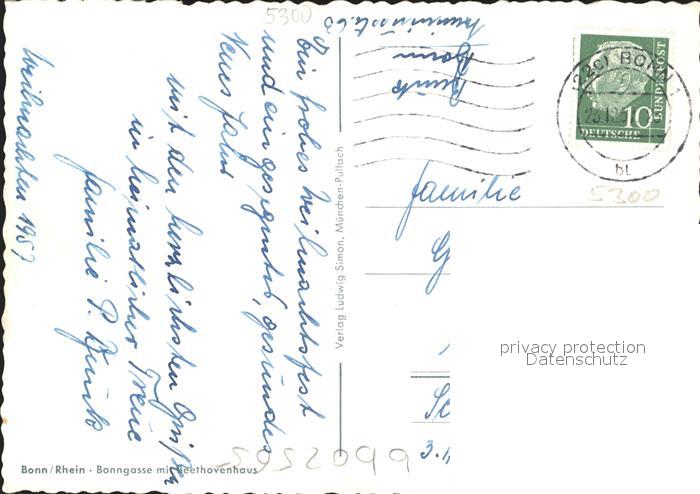 Weihnachten 1957
Ein frohes Weihnachtsfest
und ein gesegnetes, gesundes
Neues Jahr
mit den herzlichsten Grüßen
in heimatlicher Treue
Familie P.
Bonn/Rhein · Bonngasse mit Beethovenhaus
Verlag Ludwig Simon, München-Pullach
5300
Bonn
(22c) BONN 1
bt
10
DEUTSCHE
BUNDESPOST
5300
Familie
G
Sc
3.
privacy protection
Datenschutz